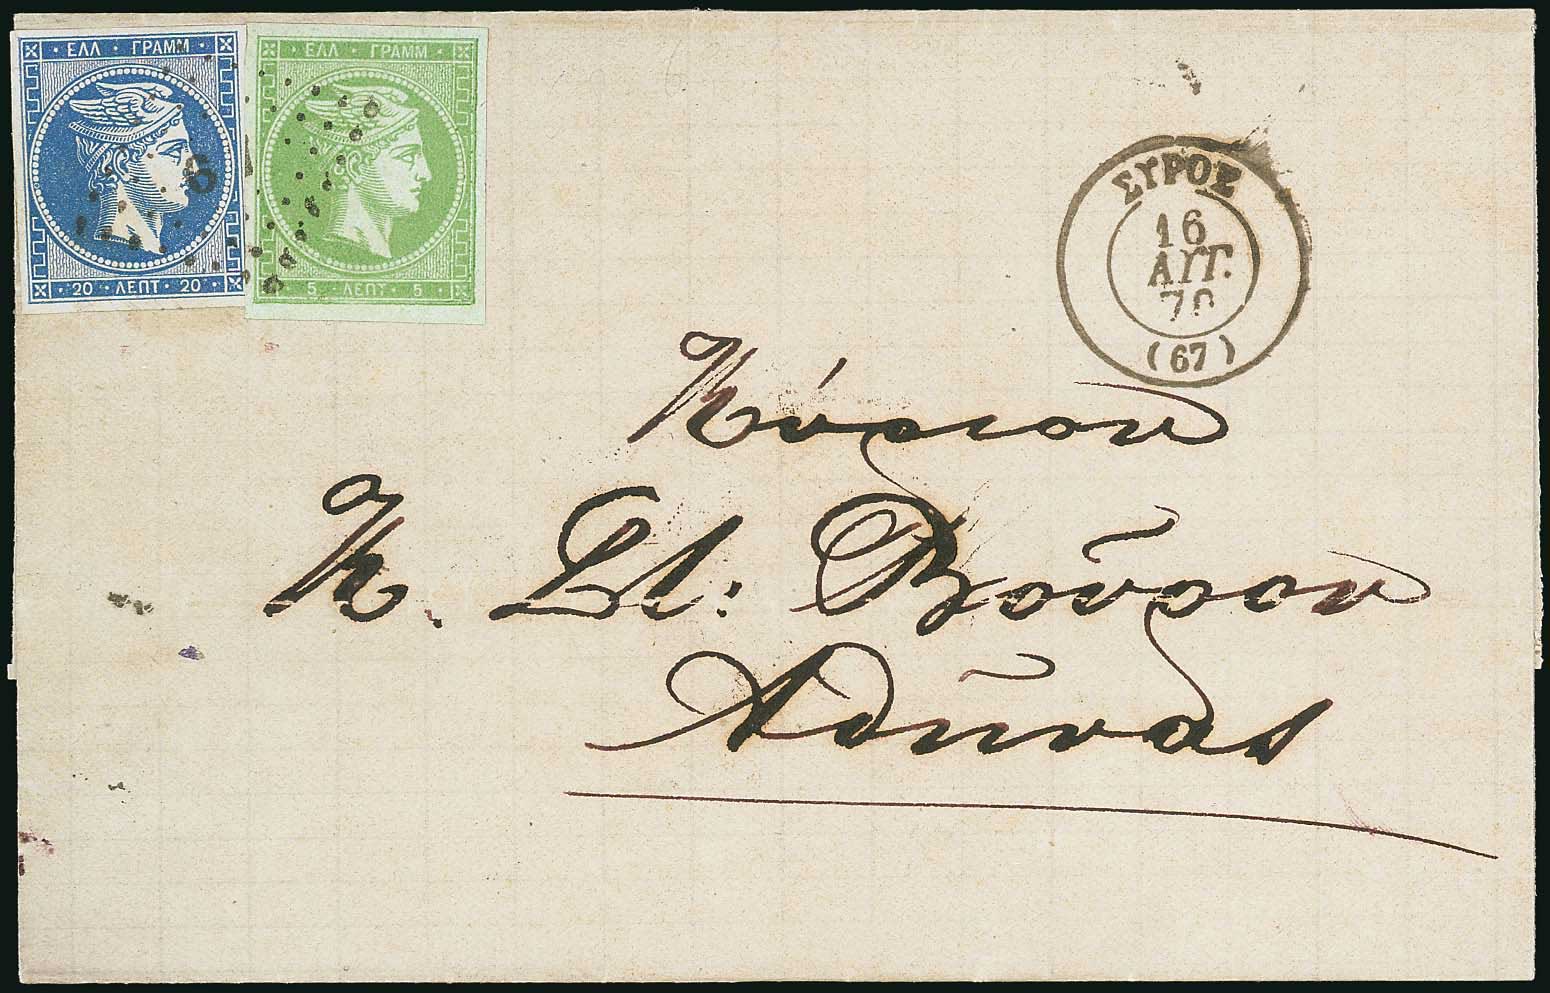 ΕΛΛ · ΓΡΑΜΜ
20 · ΛΕΠΤ · 20
ΕΛΛ · ΓΡΑΜΜ
5 · ΛΕΠΤ · 5
ΣΥΡΟΣ
16
ΑΥΓ.
70
(67)
Κύριον
Κ. Στ: Βοῦρον
Ἀθήνας